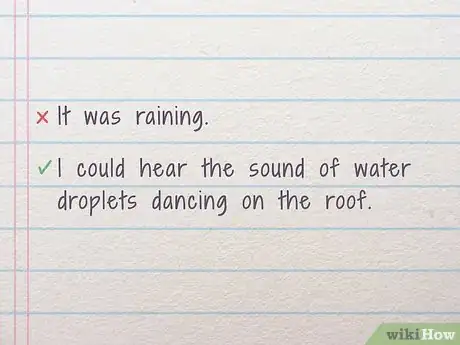 × It was raining.
✓ I could hear the sound of water
droplets dancing on the roof.
wikiHow